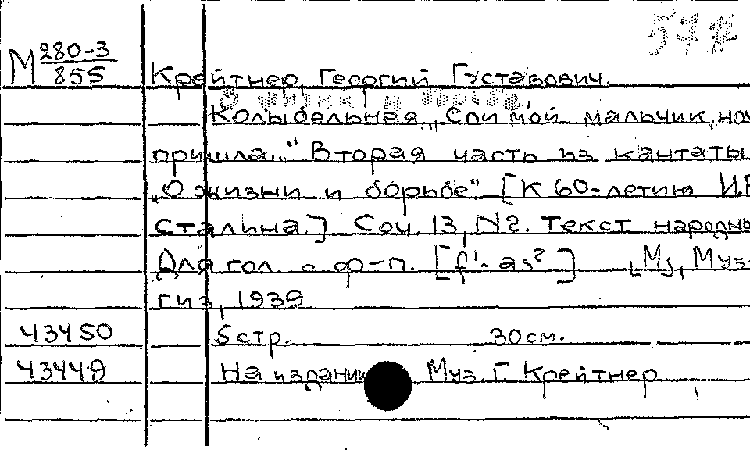 57
М 280-3
855
Крейтнер, Георгий Густавович.
Колыбельная. „Спи мой мальчик, но
пришла..." Вторая часть из кантаты
„О жизни и борьбе". [К 60-летию И.
Сталина.] Соч. 13, N2. Текст народны
Для гол. с ф-п. [f'-as²] [М], Муз-
гиз, 1939
43450 5 стр. 30 см.
43449 На издании Муз. Г. Крейтнер